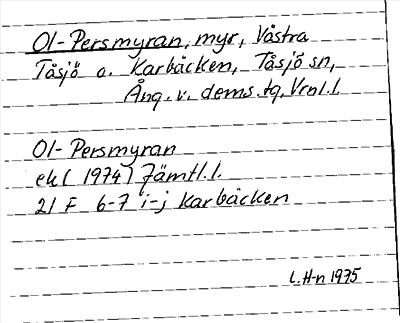 Ol-Persmyran, myr, Västra
Tåsjö o. Karbäcken, Tåsjö sn,
Ång. v. dems. tg, Vrnl. l.
Ol-Persmyran
ek (1974) Jämtl. l.
21 F 6-7 i-j Karbäcken
L. H-n 1975